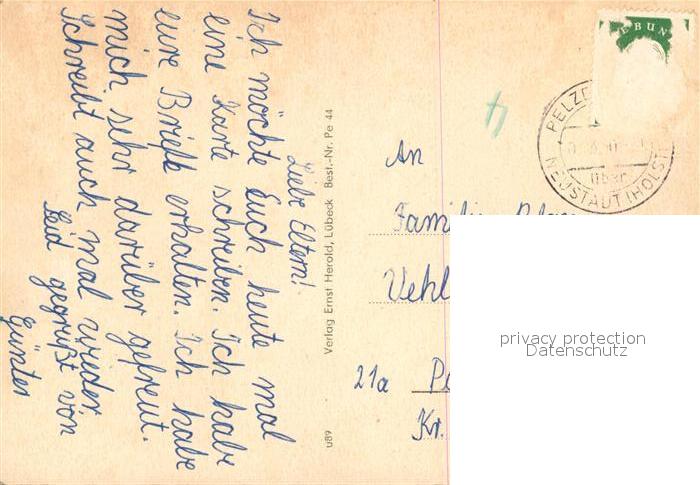 Liebe Eltern!
Ich möchte Euch heute mal
eine Karte schreiben. Ich habe
eure Briefe erhalten. Ich habe
mich sehr darüber gefreut.
Schreibt auch mal wieder.
Seid gegrüßt von
Günter
Verlag Ernst Herold, Lübeck Best.-Nr. Pe 44
u89
4
EBUN
PELZE
über
NEUSTADT (HOLST
An
Famili
Vehl
21a Pe
Kr.
privacy protection
Datenschutz